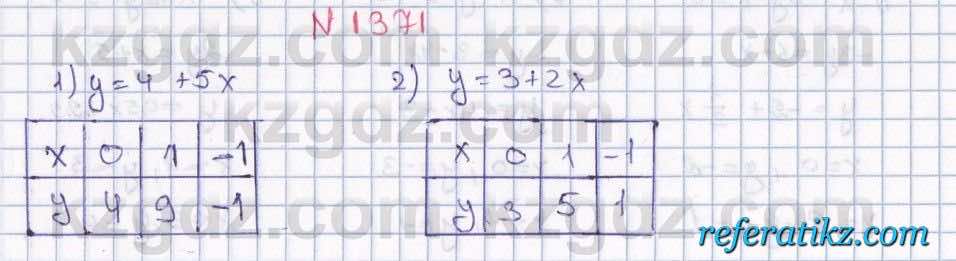 N 1371
kzgdz.com kzgdz.com
1) y = 4 + 5x 2) y = 3 + 2x
kzgdz.com
x 0 1 -1 x 0 1 -1
y 4 9 -1 y 3 5 1
kzgdz.com kzgdz.com
referatikz.com